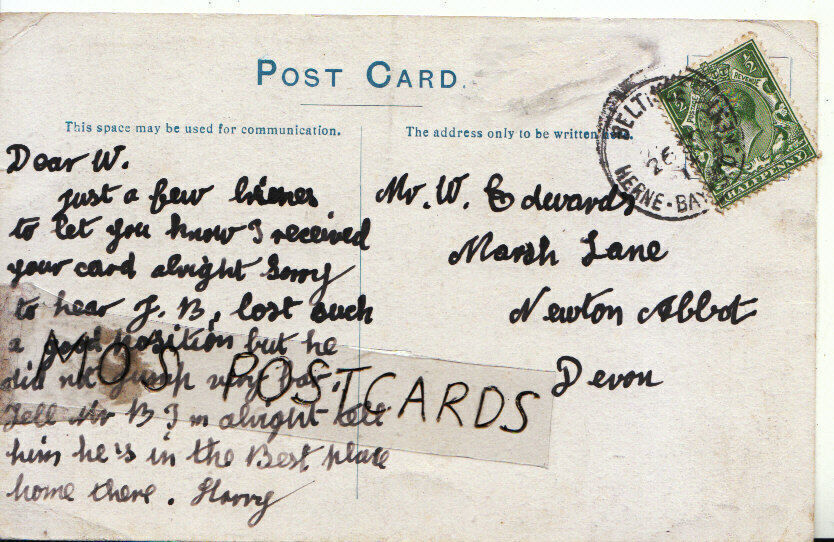 POST CARD.
This space may be used for communication.
The address only to be written here.
Dear W.
just a few lienes
to let you know I received
your card alright Sorry
to hear J. B, lost such
a good position but he
did not
Tell Mr B I'm alright tell
him he's in the Best place
home there. Harry
Mr. W. Edwards
Marsh Lane
Newton Abbot
Devon
MOS POSTCARDS
BELTINGE
HERNE-BAY
26
REVENUE
HALFPENNY